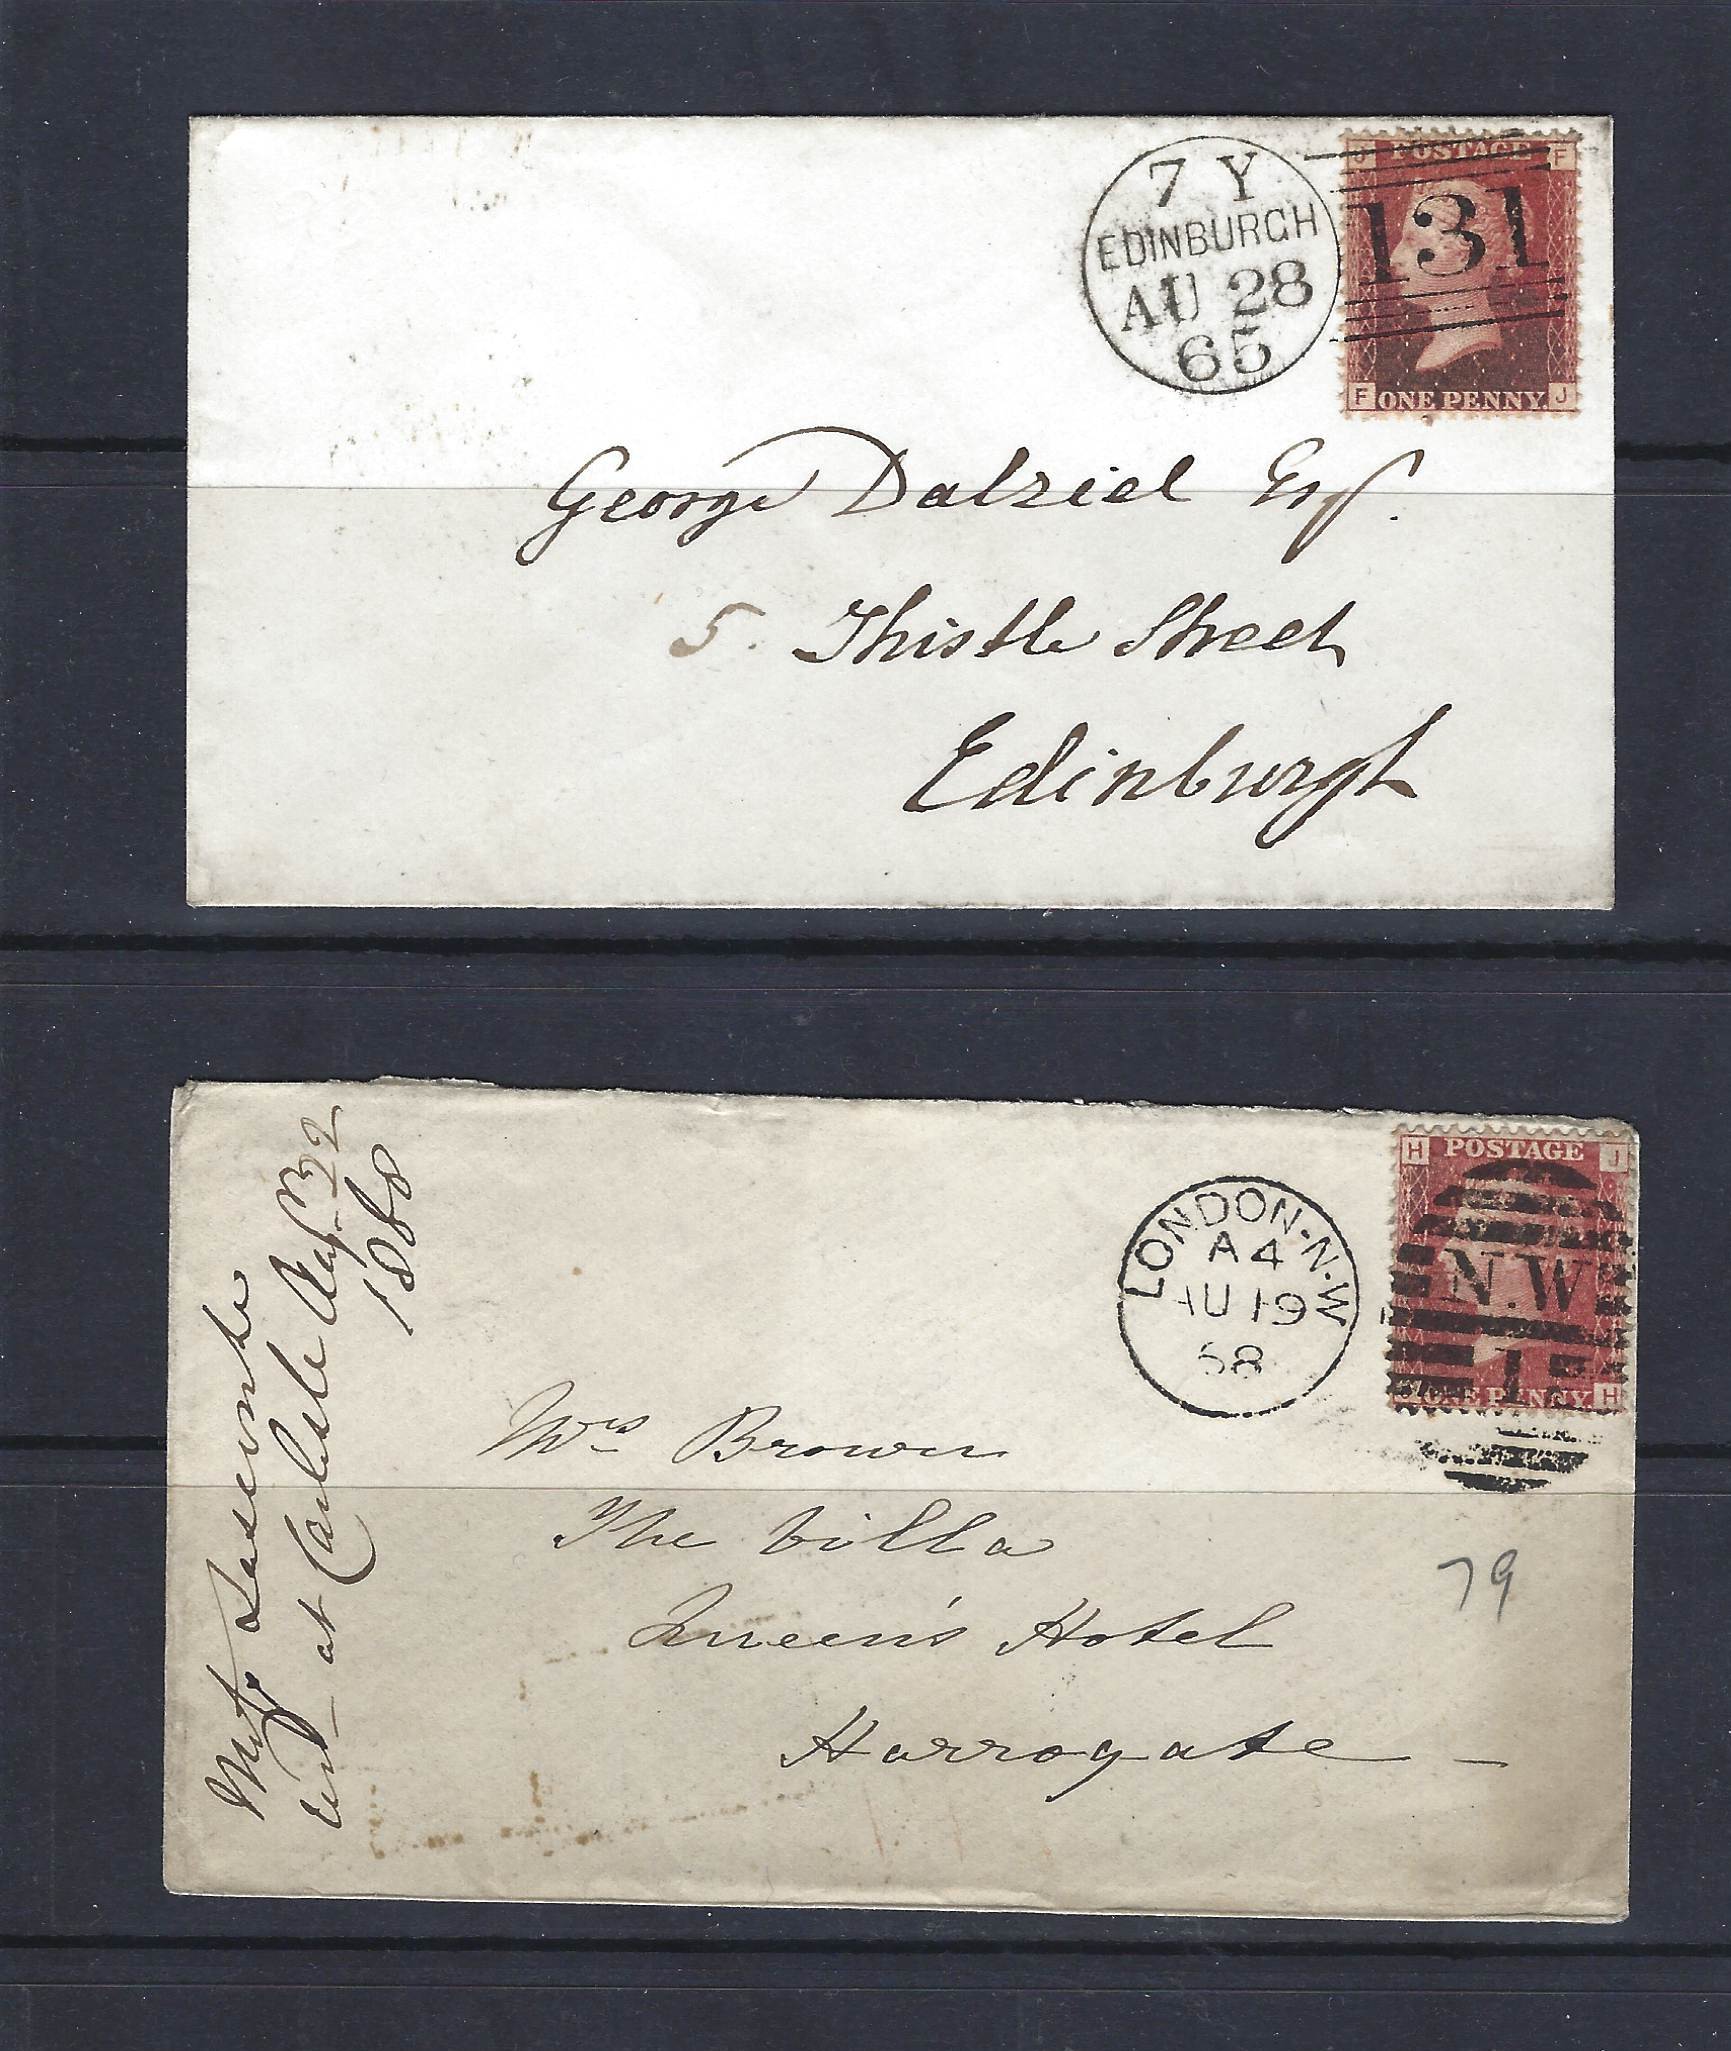 7 Y
EDINBURGH
AU 28
65
J POSTAGE F
131
F ONE PENNY. J
George Dalziel Esq.
5. Thistle Street
Edinburgh
LONDON-N.W
A4
AU 19
68
H POSTAGE J
N.W
1
ONE PENNY H
Mrs Brown
The Villa
Queen's Hotel
Harrogate
79
at Carlisle Aug. 22
1868